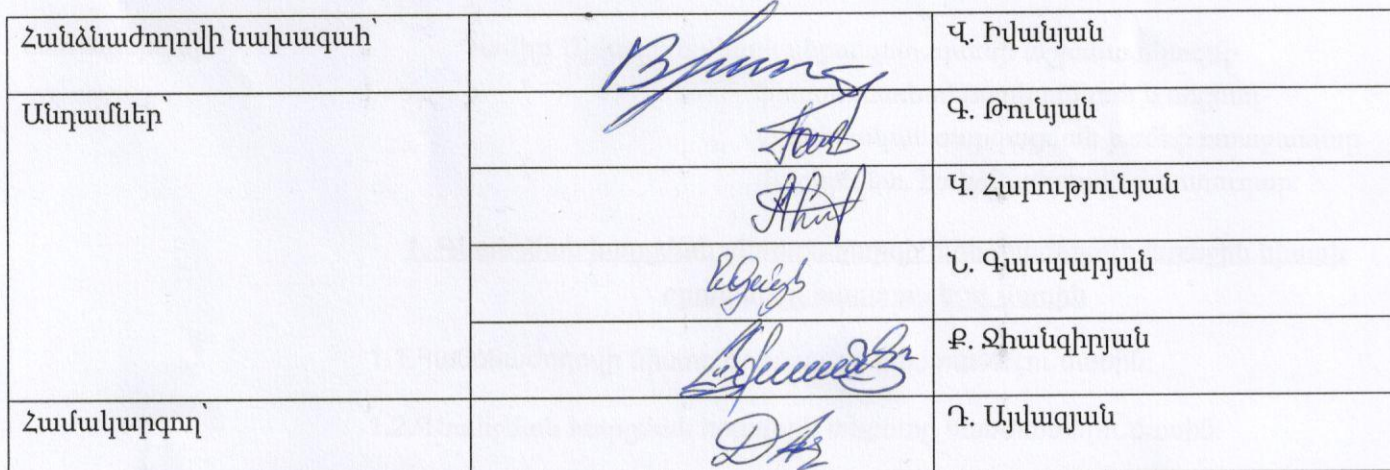 Հանձնաժողովի նախագահ՝ Վ. Իվանյան
Անդամներ՝ Գ. Թունյան
Կ. Հարությունյան
Ն. Գասպարյան
Ք. Ջհանգիրյան
Համակարգող՝ Դ. Այվազյան